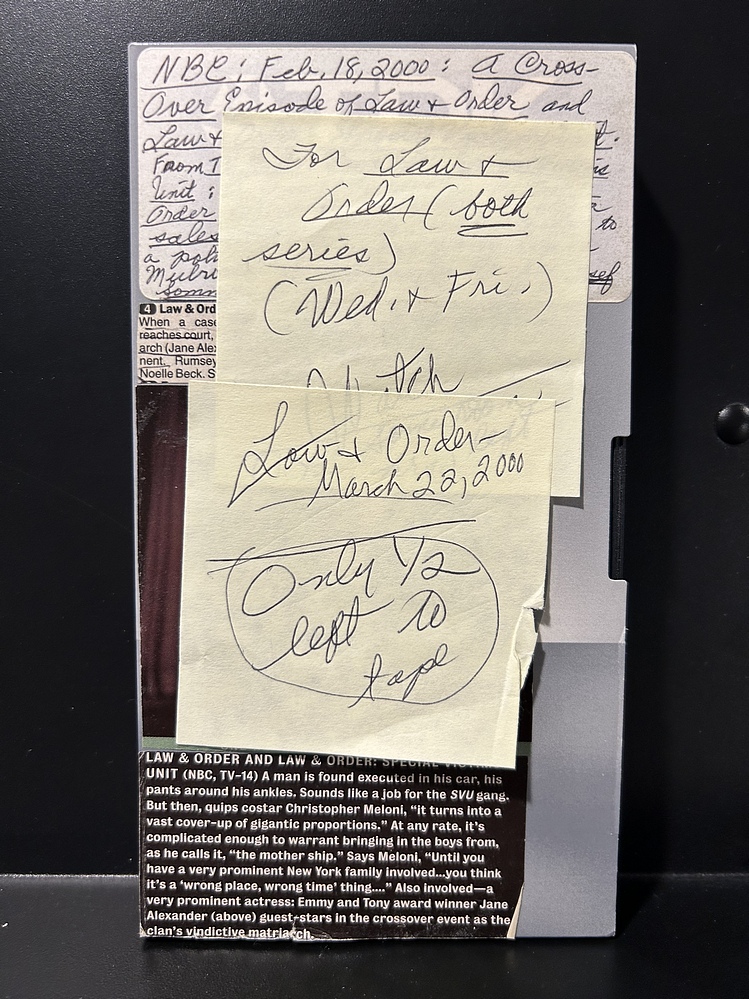 NBC: Feb. 18, 2000: A Cross-
Over Episode of Law & Order and
Law &
From T
Unit:
Order
sales to
a poli
Multi
somn
For Law &
Order (both
series)
(Wed. & Fri.)
Watch
4 Law & Ord
When a case
reaches court,
arch (Jane Alex
nent. Rumsey
Noelle Beck. S
Law & Order-
March 22, 2000
Only 1/2
left to
tape
LAW & ORDER AND LAW & ORDER: SPECIAL VICTIMS
UNIT (NBC, TV-14) A man is found executed in his car, his
pants around his ankles. Sounds like a job for the SVU gang.
But then, quips costar Christopher Meloni, “it turns into a
vast cover-up of gigantic proportions.” At any rate, it’s
complicated enough to warrant bringing in the boys from,
as he calls it, “the mother ship.” Says Meloni, “Until you
have a very prominent New York family involved...you think
it’s a ‘wrong place, wrong time’ thing....” Also involved—a
very prominent actress: Emmy and Tony award winner Jane
Alexander (above) guest-stars in the crossover event as the
clan’s vindictive matriarch.